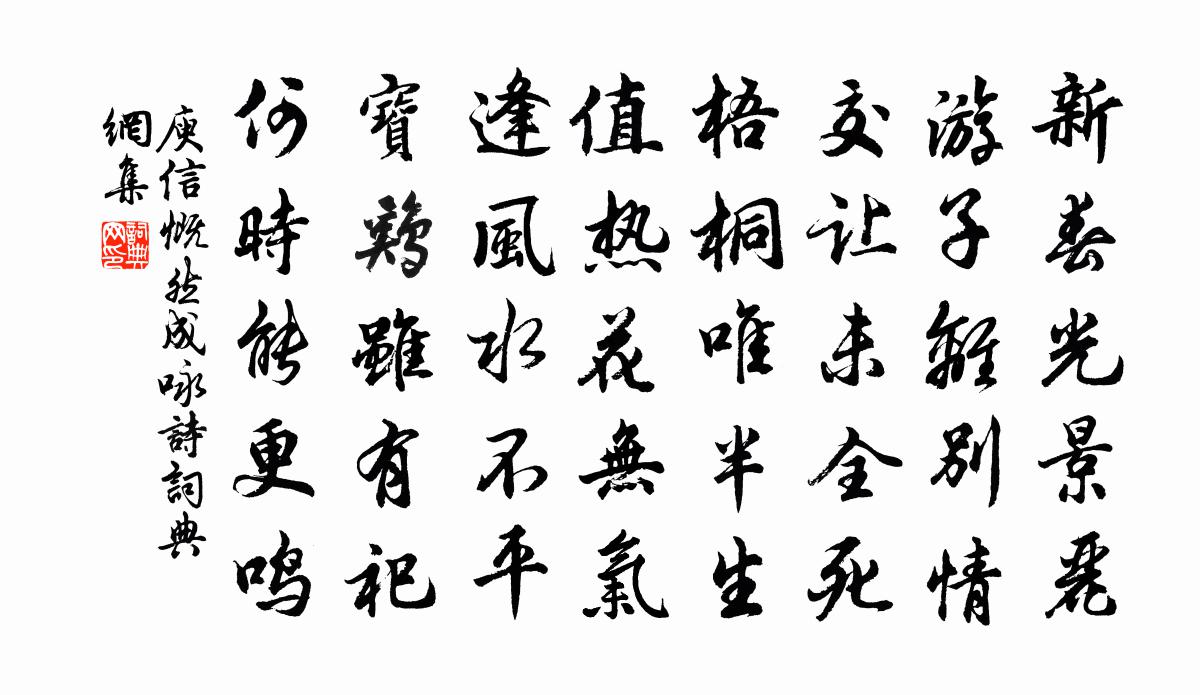 新春光景麗
游子離別情
交让未全死
梧桐唯半生
值热花無氣
逢風水不平
寶鷄雖有祀
何時能更鸣
庾信慨然成咏詩詞典
網集
詞典
网印